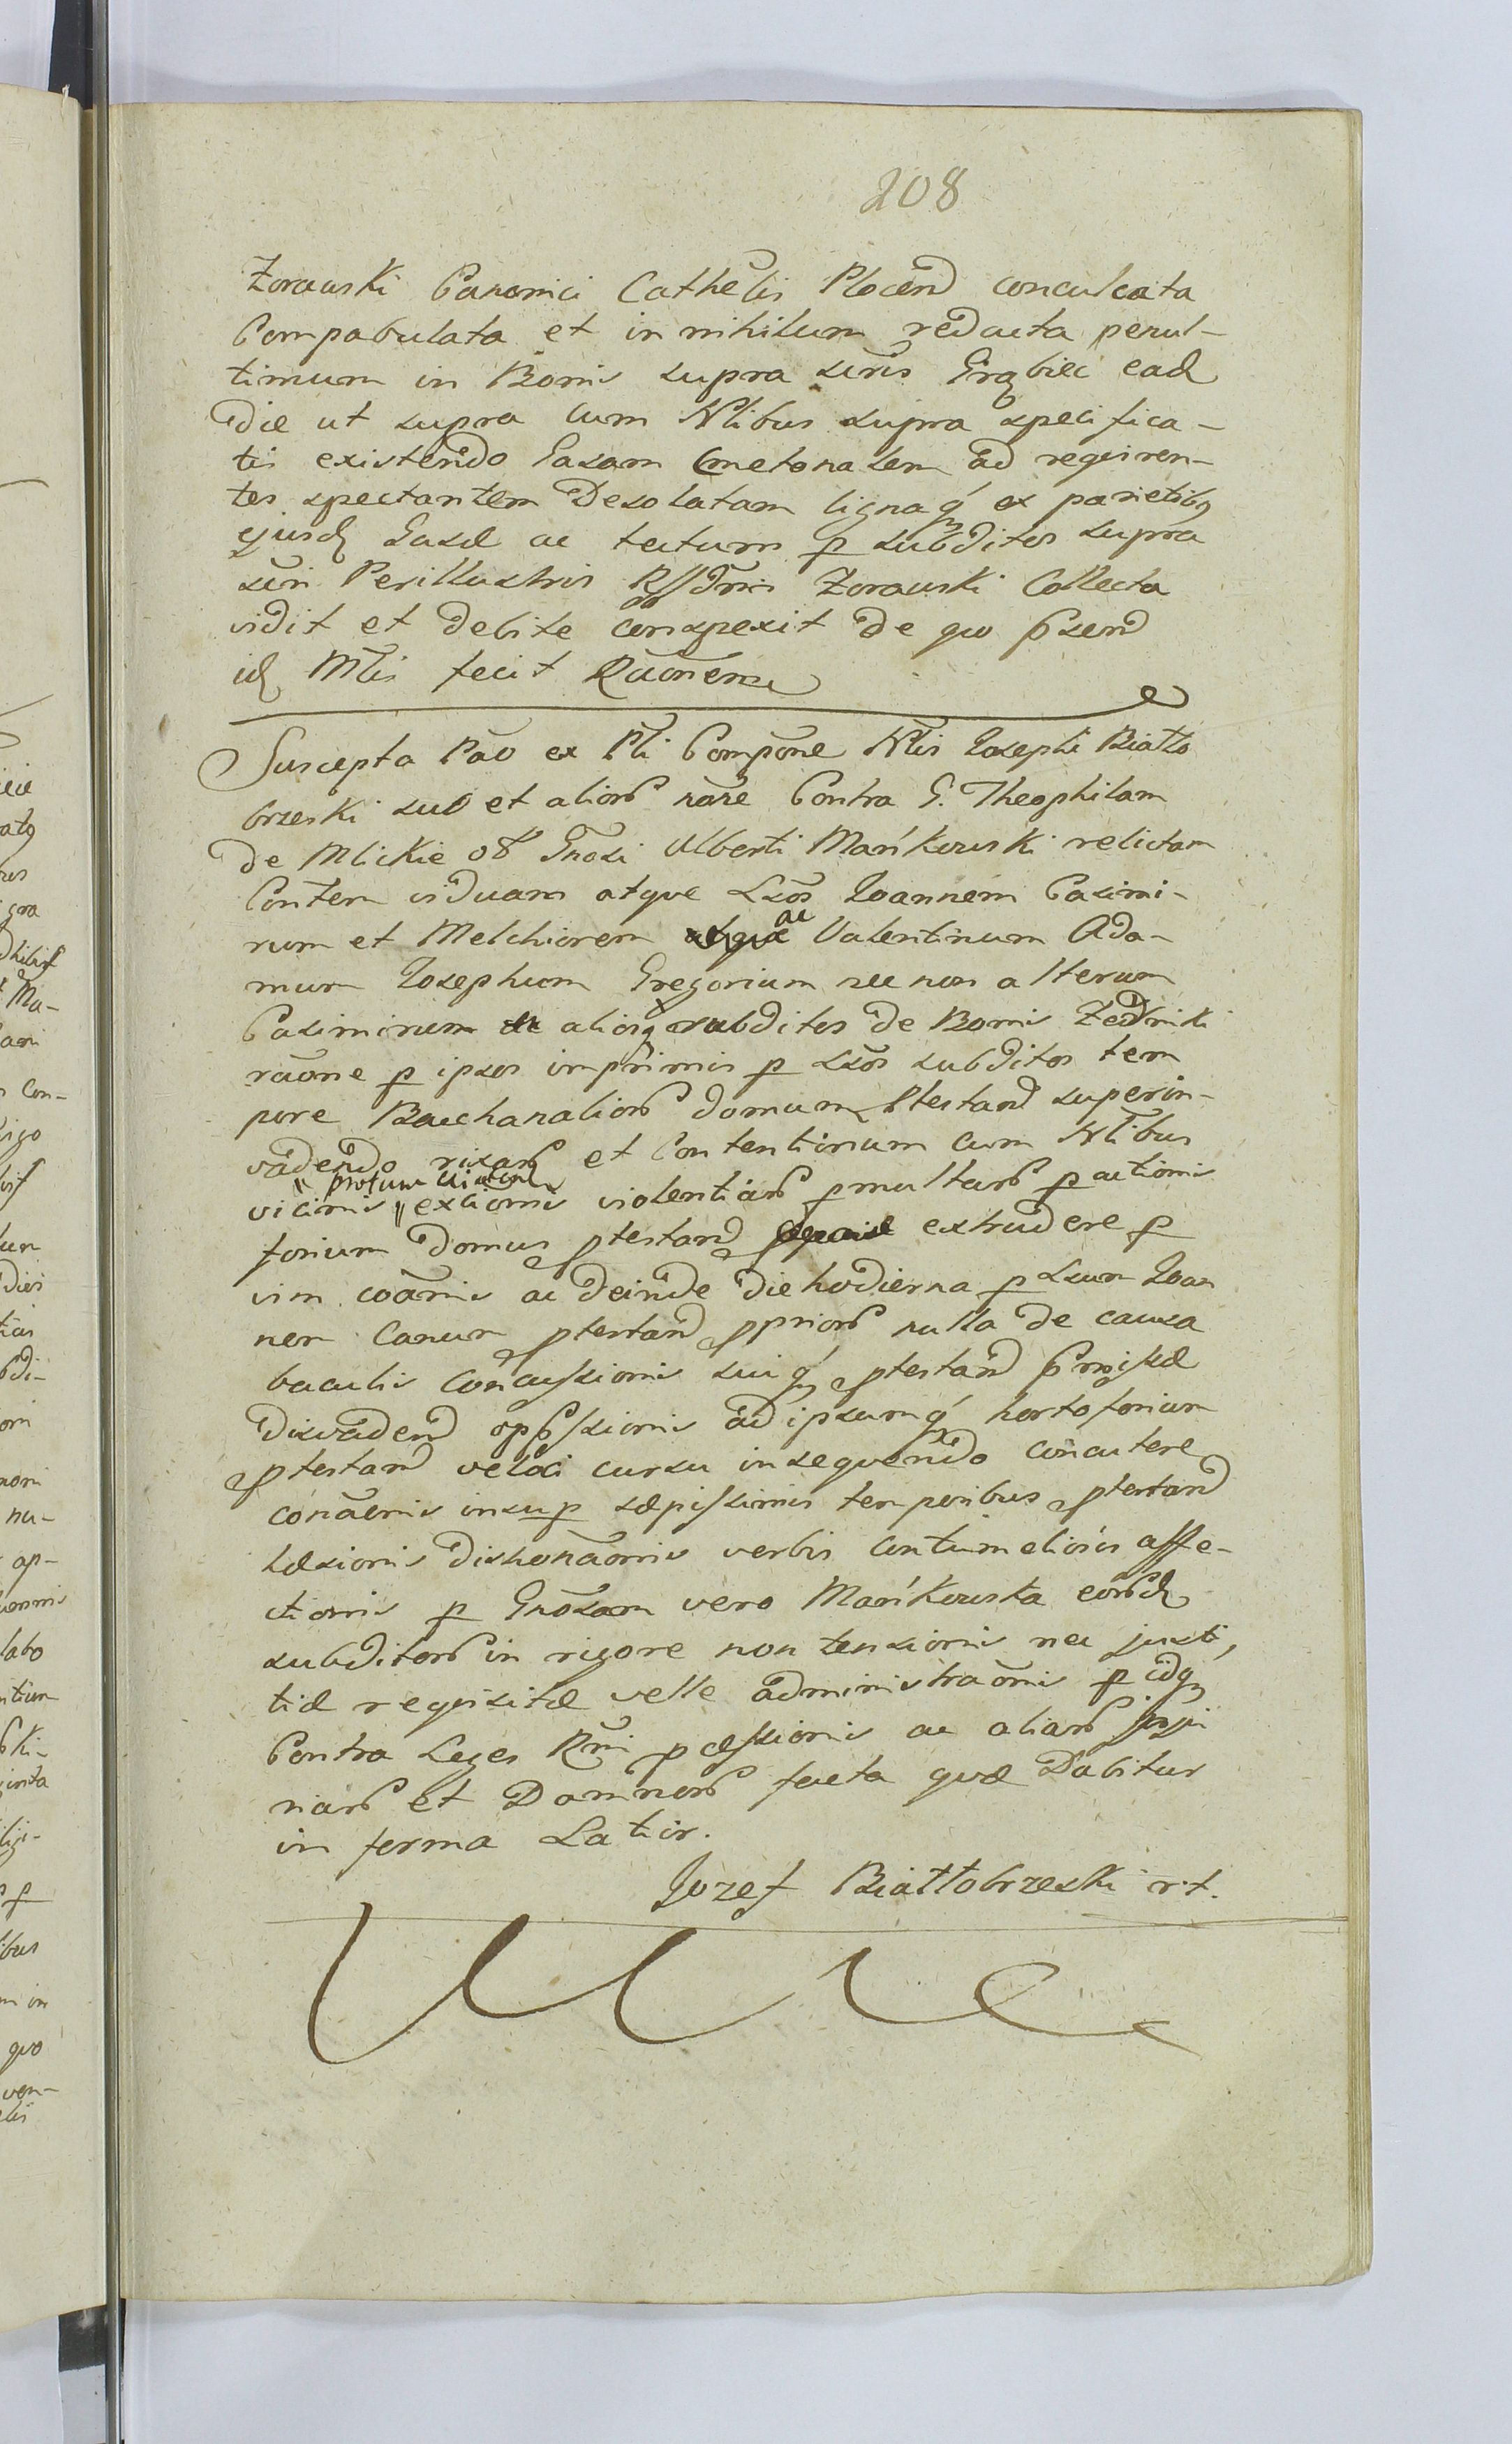 208
Zorawski Canonici Cathēlis Plocen̄ conculcata
Compabulata et in nihilum redacta perul-
timum in Bonis supra scris Grąbiec ead
die ut supra cum Nlibus supra specifica-
tis existendo Casam Cmetonalem ad requiren-
tes spectantem Desolatam lignaq́ ex parietibq
ejusd Casæ ac tectum p subditos supra
scri Perillustris Rssi Dn̄i Zorawski Collecta
vidit et debite conspexit de quo p̄sens
id Mlis fecit Rāonem
Suscepta Pāo ex Pli Compōne Nlis Josephi Białło
brzeski suo et alior noīe Contra G. Theophilam
de Mlickie olī Gnosi Alberti Mańkowski relictam
Contem viduam atque Lsos Joannem Casimi-
rum et Melchiorem ac Valentinum Ada-
mum Josephum Gregorium nec non alterum
Casimirum aliosq subditos de Bonis
rāone p ipsos inprimis p Lsos subditos tem
pore Bacchanalior domum Ptestan̄ superin-
vadendo rixar et Contentionum cum Nlibus
vicinis "extionis violentiar pmultar pactionis
forium domus ptestan̄ extrudere p
vim coāmis ac deinde die hodierna p Lsum Joan
nem Canum ptestan̄ pprior nulla de causa
baculis Concussionis suiq́ ptestan̄ p̄missæ
disvaden̄ opp̄ssionis ad ipsumq́ hortoforium
ptestan̄ veloci cursu insequendo concutere
conāenis insup sæpissimis temporibus ptestan̄
læsionis dishonāonis verbis contumeliosis affe-
ctionis p Gnosam vero Mańkowska eord
subditor in rigore non tensionis nec justi,
tiæ requisitæ velle administrāonis p idq
Contra Leges Rni pæssionis ac aliar
niar et Damnor facta quæ Dabitur
in forma Latior.
Jozef Białłobrzeski r.t.